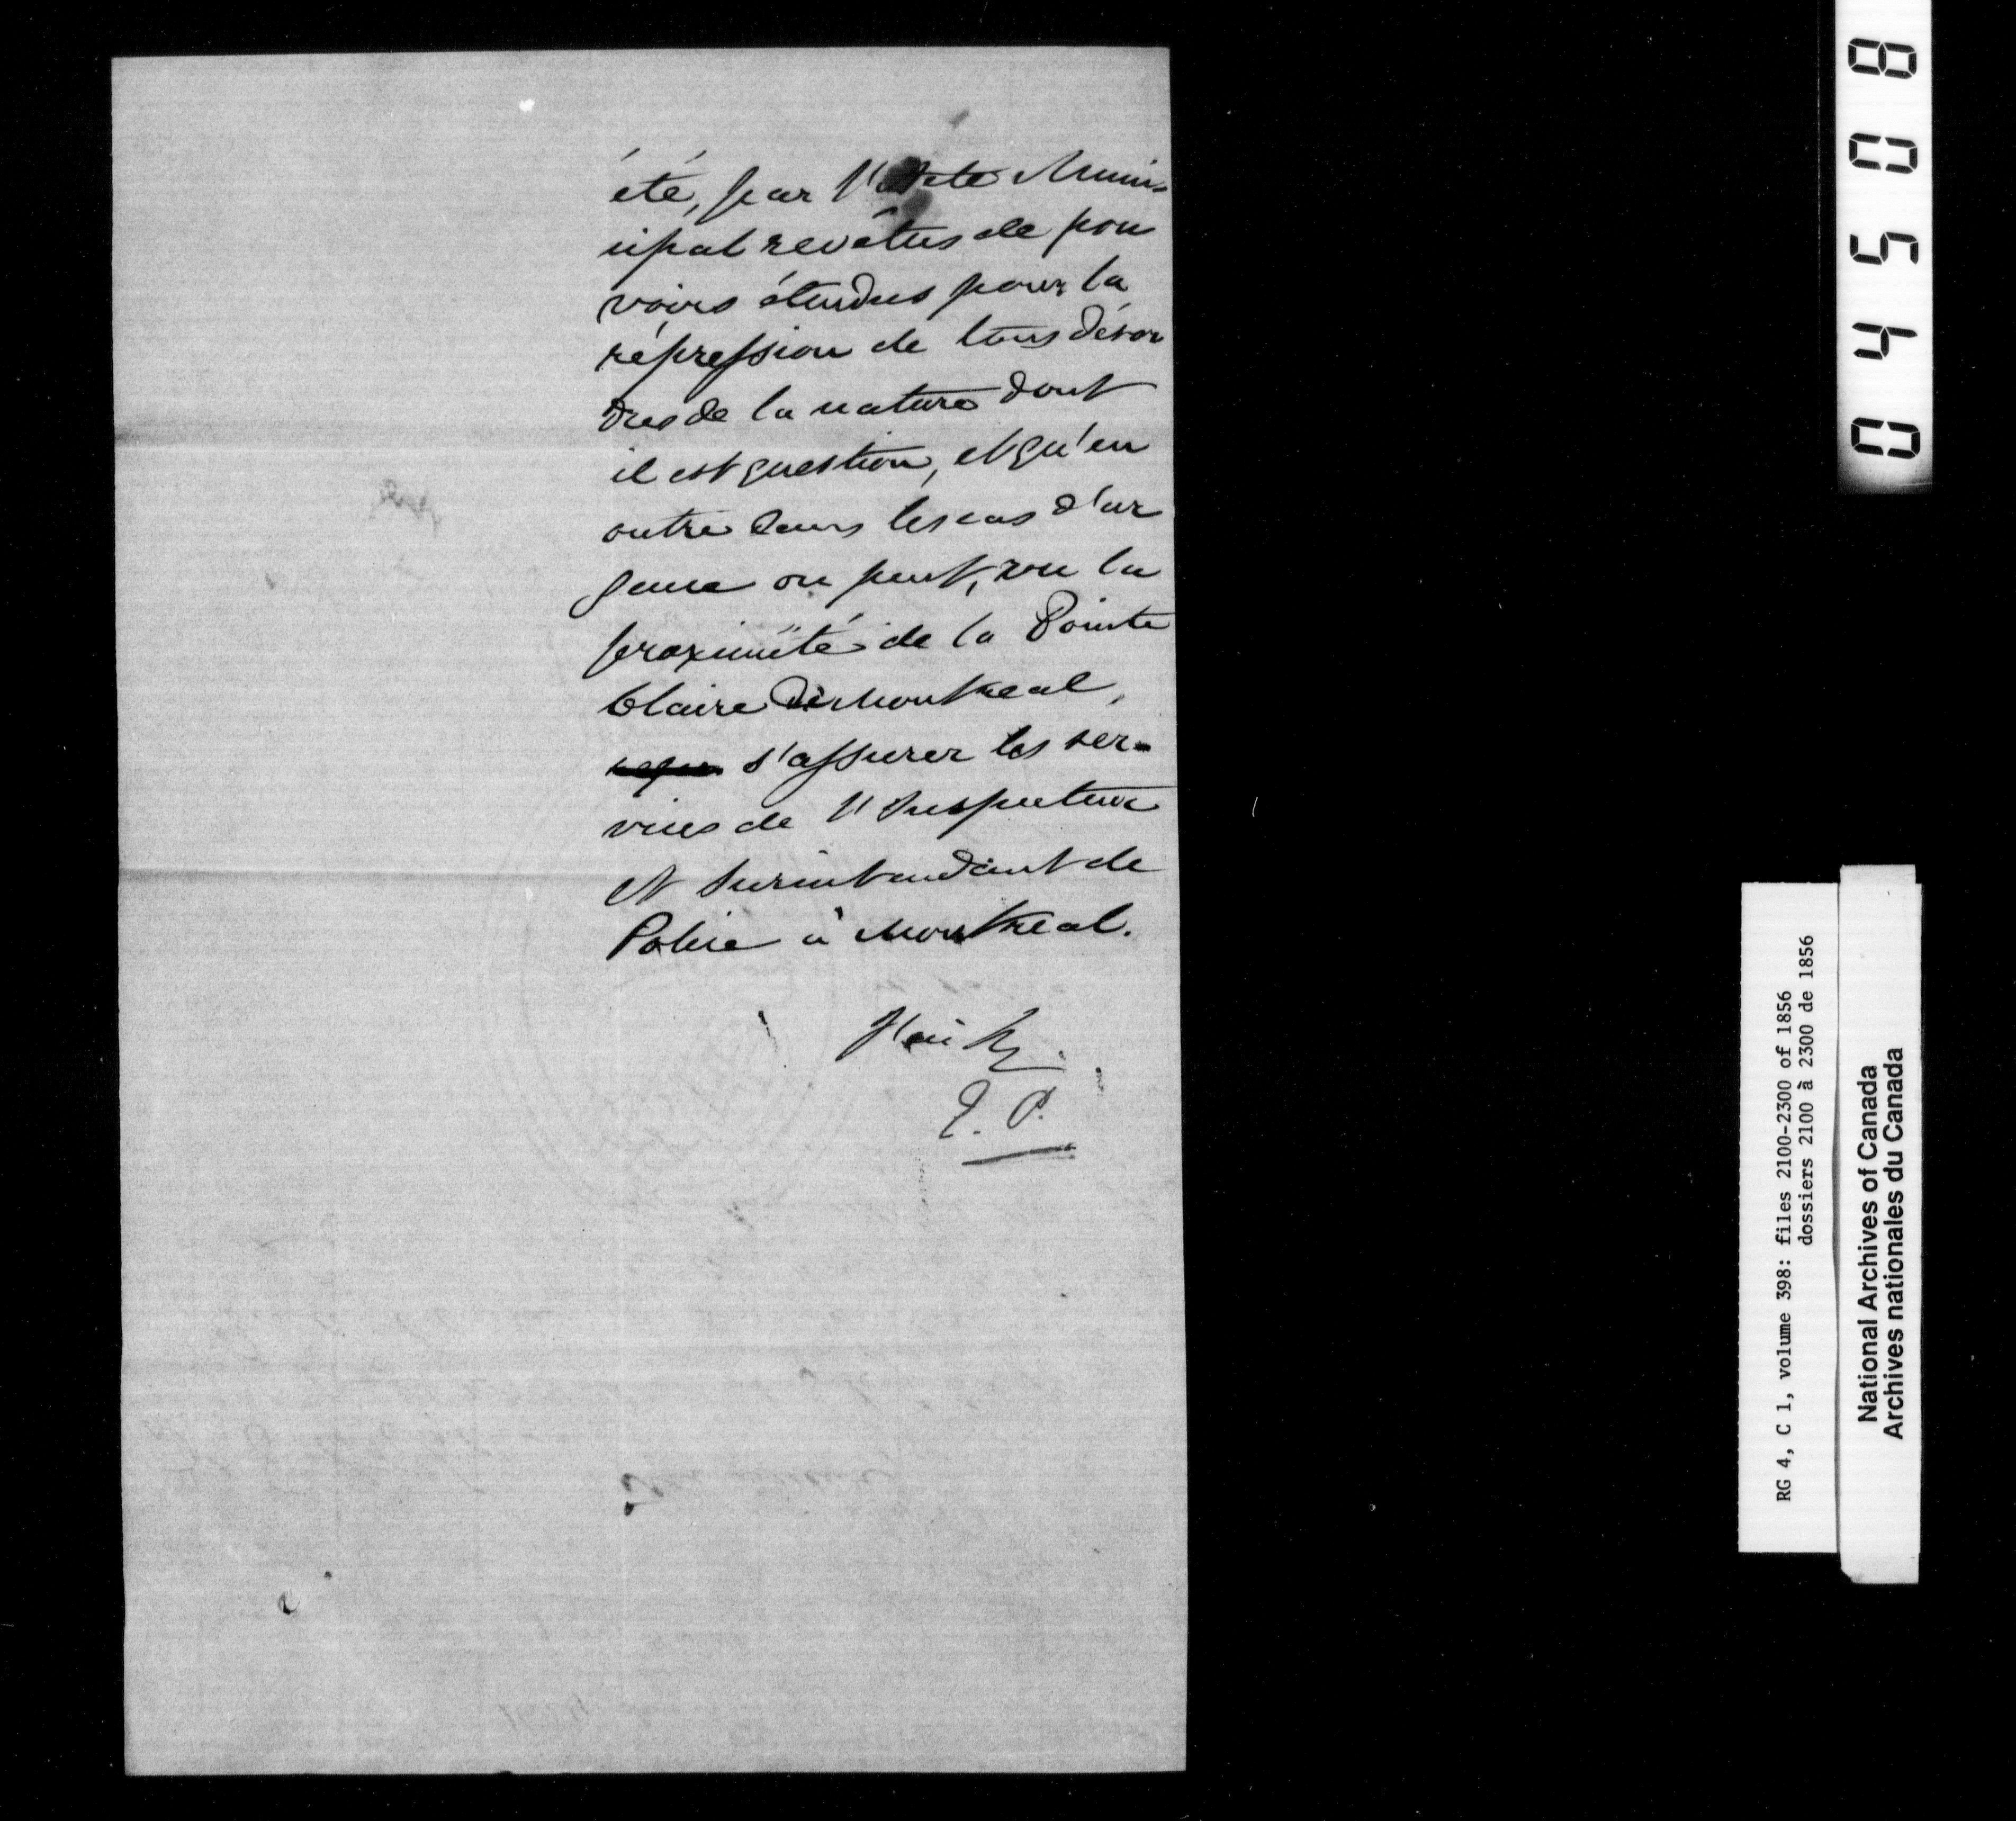 été, par l'Acte Muni-
cipal revêtus de pou
voirs étendus pour la
répression de tous désor
dres de la nature dont
il est question, et qu'en
outre dans les cas d'ur
gence on peut, vu la
proximité de la Pointe
Claire de Montreal,
s'assurer les ser-
vices de l'Inspecteur
et Surintendant de
Police à Montreal.
J'ai &c.
E. P.
04508
RG 4, C 1, volume 398: files 2100-2300 of 1856
dossiers 2100 à 2300 de 1856
National Archives of Canada
Archives nationales du Canada